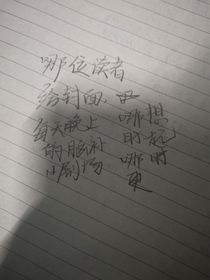 哪位读者
给封面,
每天晚上
的脑补
小剧场,
哪想
时起,
哪时
更